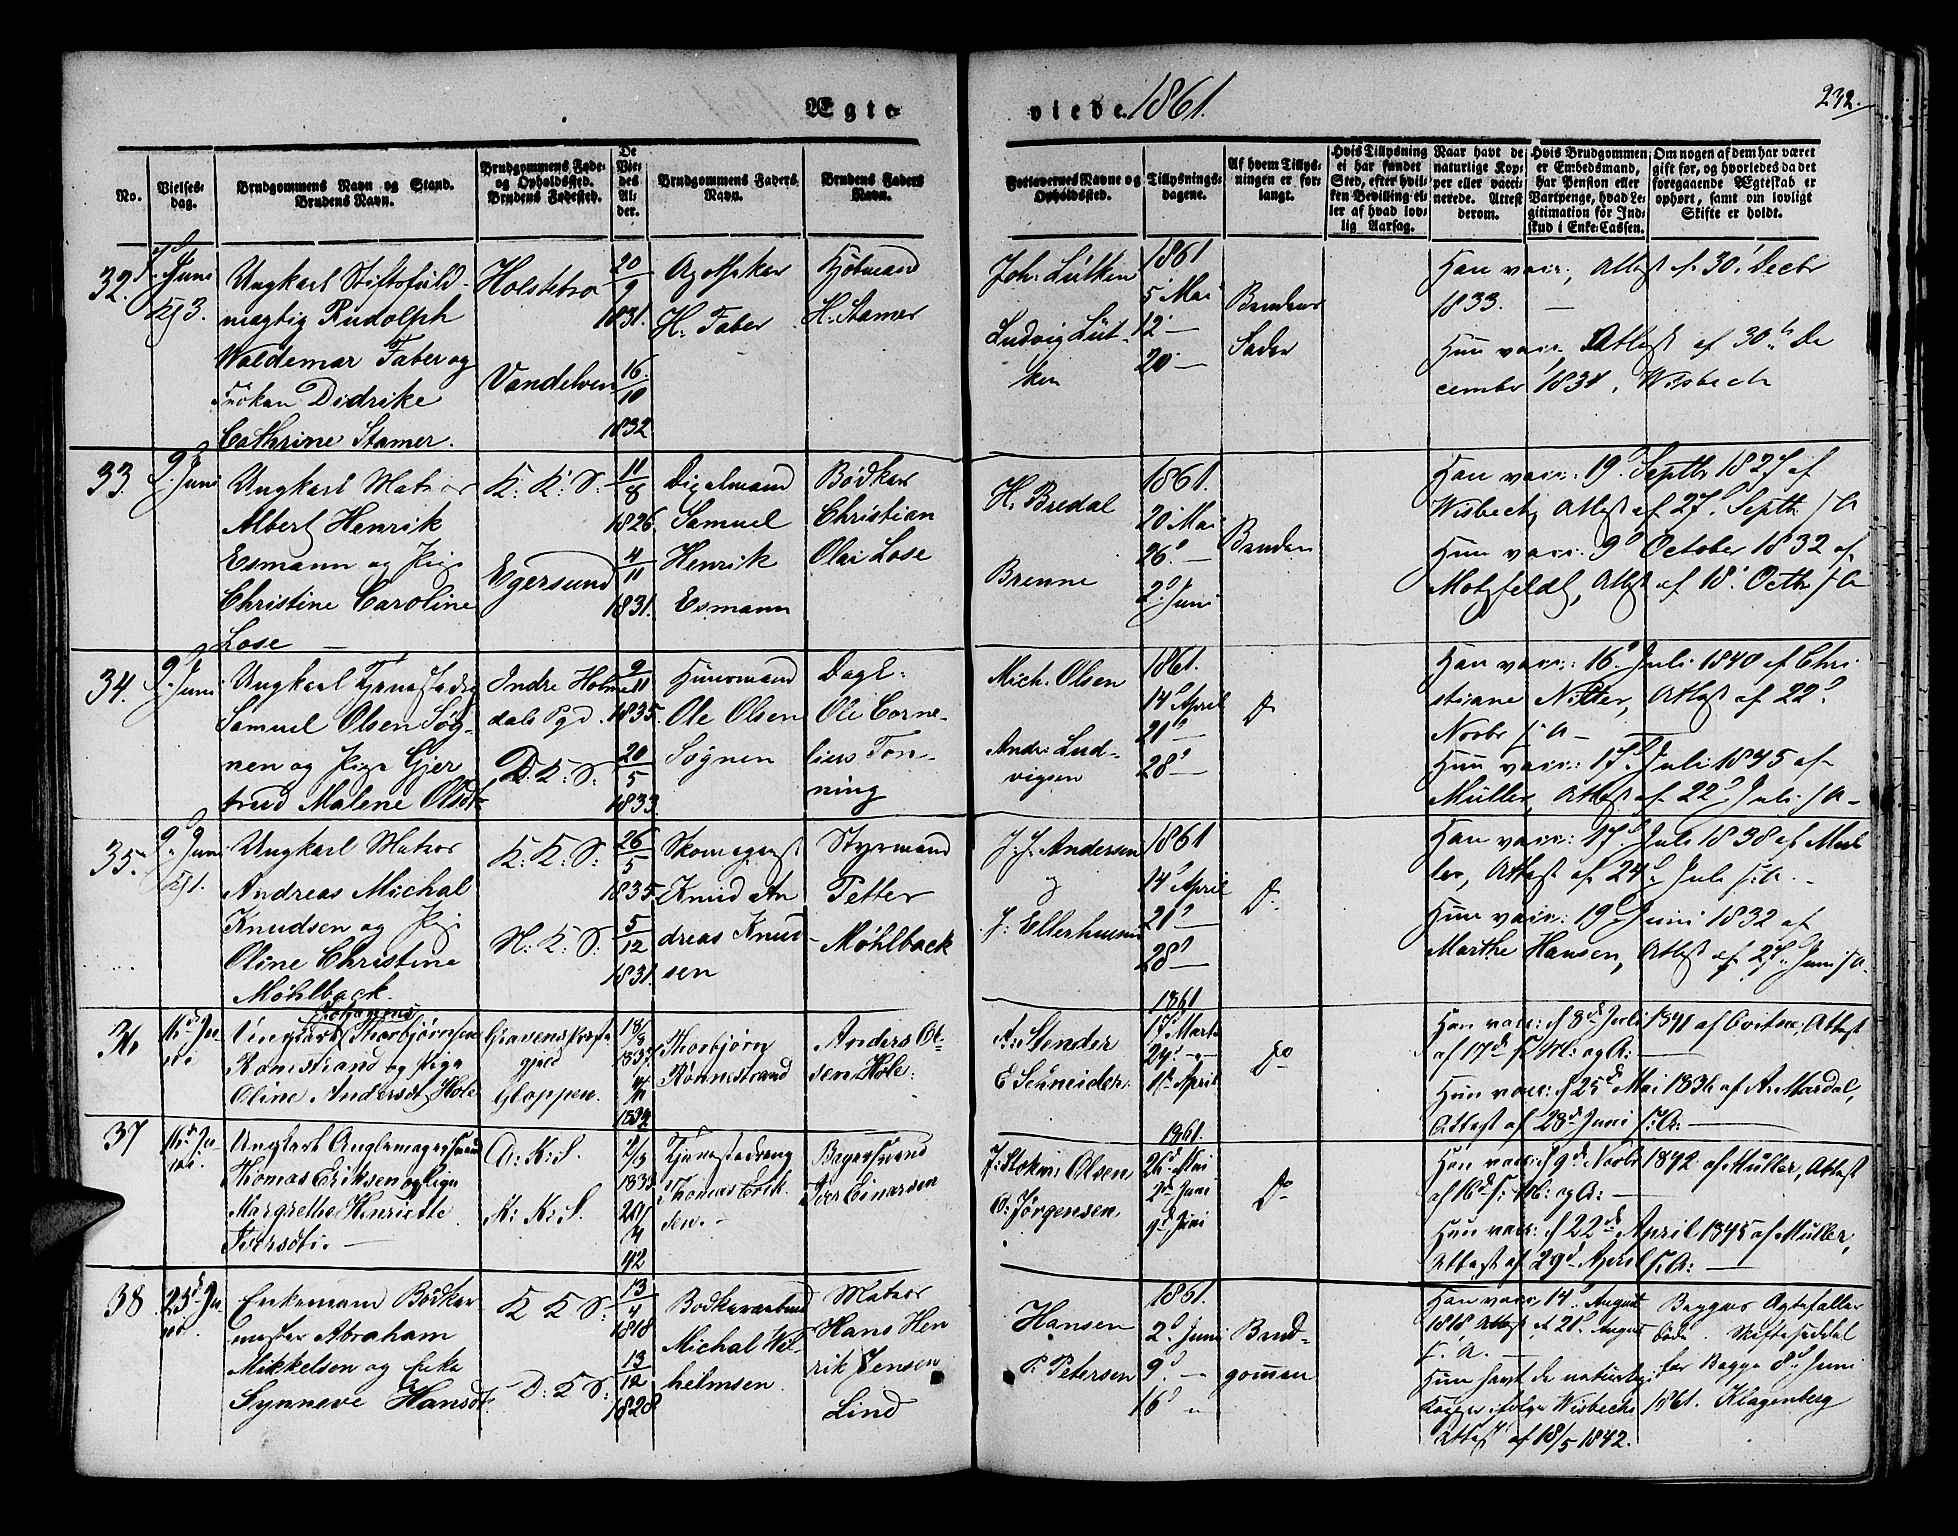 Ægte
viede 1861.
232.
No.
Vielses-
dag.
Brudgommens Navn og Stand.
Brudens Navn.
Brudgommens Føde-
og Opholdssted.
Brudens Fødested.
De
Vie-
des
Al-
der.
Brudgommens Faders
Navn.
Brudens Faders
Navn.
Forlovernes Navne og
Opholdssted.
Tillysnings-
dagene.
Af hvem Tillys-
ningen er for-
langt.
Hvis Tillysning
ei har fundet
Sted, efter hvil-
ken Bevilling el-
ler af hvad lov-
lig Aarsag.
Naar havt de
naturlige Kop-
per eller vacci-
nerede. Attest
derom.
Hvis Brudgommen
er Embedsmand,
har Pension eller
Vartpenge, hvad Le-
gitimation for Ind-
skud i Enke-Cassen.
Om nogen af dem har været
gift før, og hvorledes da det
foregaaende Ægteskab er
ophørt, samt om lovligt
Skifte er holdt.
32.
Juni
Kl 3.
Ungkarl Stiftsfuld-
mægtig Rudolph
Waldemar Faber og
Frøken Didrike
Cathrine Stamer.
Holstebro
Vandelven
20
9
1831.
16
10
1832.
Apotheker
H. Faber
Kjøbmand
H. Stamer
Joh. Lütken
Ludvig Lüt-
ken
1861
5 Mai
12 —
20 —
Brudens
Fader
Han vacc. Attest f. 30. Decbr
1833. —
Hun vacc. Attest af 30. De
cember 1834. Wisbech
33.
2. Juni
Ungkarl Matros
Albert Henrik
Esmann og Pige
Christine Caroline
Lose —
K: K: S:
Egersund
11
8
1826.
4
11
1831.
Samuel
Henrik
Esmann
Bødker
Christian
Olai Lose
H. Bredal
Brenne
1861.
20 Mai
26. —
2. Juni
Bruden
Han vacc: 19. Septbr 1827 af
Wisbech, Attest af 27. Septbr s. A
Hun vacc: 9. October 1832 af
Motzfeldt, Attest af 18. Octbr s. A
34.
2. Juni
Ungkarl Tjenestedreng
Samuel Olsen Søg-
nen og Pige Gjer
trud Malene Olsdt.
Indre Holme
dals Pgd.
D: K: S:
9
11
1835.
20
5
1833.
Huusmand
Ole Olsen
Søgnen
Dagl:
Ole Corne-
lius Ton-
ning
Mich. Olsen
Andr. Lud-
vigsen
1861.
14 April
21 —
28 —
Do
Han vacc: 16. Juli 1840 af Chri
stiane Nitter, Attest af 22.
Novbr s. A —
Hun vacc: 17. Juli 1845 af
Müller, Attest af 22. Juli s. A —
35.
2. Juni
Kl 1.
Ungkarl Matros
Andreas Michal
Knudsen og Pige
Oline Christine
Møhlback.
K: K: S:
N: K: S:
26
5
1835.
5
12
1831.
Knud An
dreas Knud
sen
Styrmand
Petter
Møhlback
J. J. Andersen
og
J. Ellerhusen
1861
14 April
21 —
28 —
Do
Han vacc: 17. Juli 1838 af Mül
ler, Attest af 24. Juli s. A. —
Hun vacc: 19. Juni 1832 af
Marthe Hansen, Attest af 27. Juni s. A
36
16d Ju
ni
Johannes
Ungkarl Thorbjørnsen
Rønestrand og Pige
Oline Andersdt Hole
Gravens Præste
gjeld
Gloppen.
18/
8
1837
1834
Thorbjørn
Rønnestrand
Anders Ol-
sen Hole:
A: Stender
E Schneider.
1861
17 Marts
24 —
1 April
Do
Han vacc: d 8d Juli 1841 af Cvitne, Attest
af 17d s. M: og A: —
Hun vacc: d 25d Mai 1836 af A. Mardal,
Attest af 28d Juni s. A: —
37
16d Ju
ni.
Thomas Eriksen og Pige
Margrethe Henriette
Iversdt. —
A: K: S.
K: K: S.
1833
20/
4
42
Tjenestedreng
Thomas Erik-
sen. —
Iver Einarsen
J. Stokm. Olsen
O. Jørgensen
1861
26 Mai
2d Juni
9d Juni
Do
Han vacc: d 9d Novbr 1842 af Müller, Attest
af 16d s: M: og A: —
Hun vacc: d 22d April 1845 af Müller,
Attest af 29d April s. A: —
38
25d Ju
ni.
Enkemand Bødker
mester Abraham
Mikkelsen og Enke
Synneve Hansdt.
K K S.
D: K S:
13
4
1818
13
12
1828
Michal Wil-
helmsen
Matros
Hans Hen
rik Jensen
Lind
Hansen
P. Petersen
1861.
2. Juni
9. —
16. "
Brud-
gommen
Han vacc. 14. August
1818 Attest f. 21. August
s. A. —
Hun havt de naturlige
Kopper ifølge Wisbechs
Attest af 18/5 1842.
Begges Ægtefæller
døde. Skifteseddel
for Begge 8. Juni
1861. Klagenberg